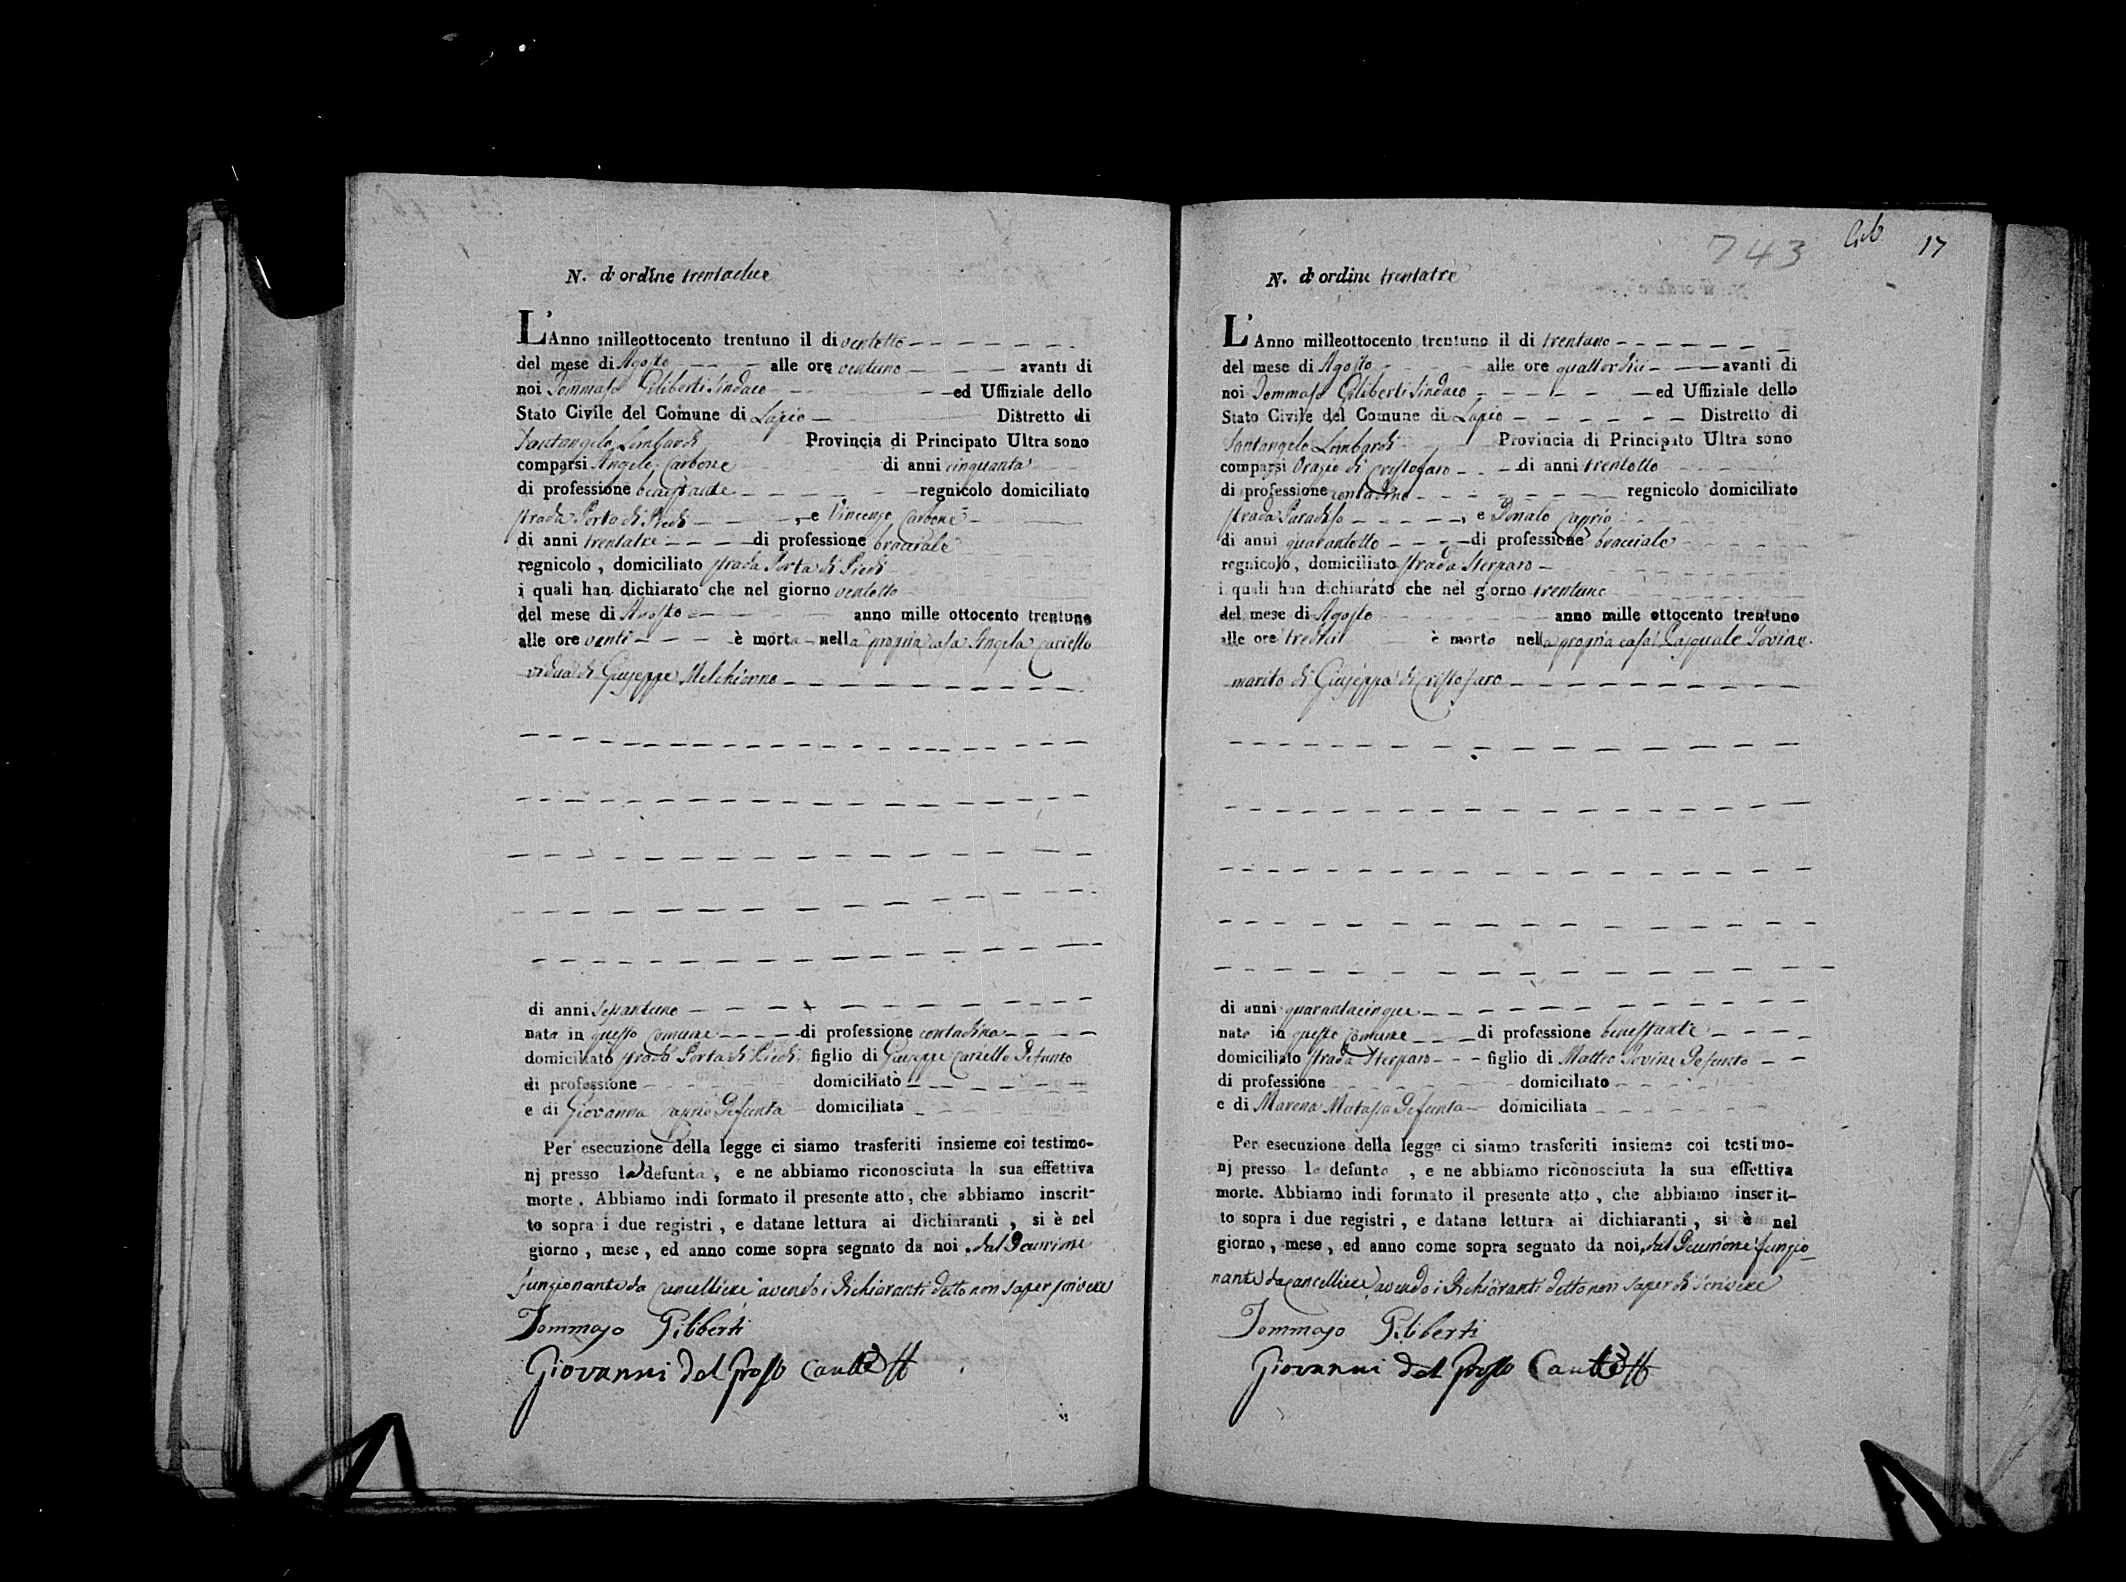 N. d'ordine trentadue
L'Anno milleottocento trentuno il di ventotto
del mese di Agosto alle ore ventuno avanti di
noi Tommaso Giliberti Sindaco ed Uffiziale dello
Stato Civile del Comune di Lapio Distretto di
Santangelo Lombardi Provincia di Principato Ultra sono
comparsi Angelo Carbone di anni cinquanta
di professione benestante regnicolo domiciliato
strada Porta di Piedi, e Vincenzo Carbone
di anni trentatre di professione bracciale
regnicolo, domiciliato strada Porta di Piedi
i quali han dichiarato che nel giorno ventotto
del mese di Agosto anno mille ottocento trentuno
alle ore venti è morta nella propria casa Angela Cariello
vedua di Giuseppe Melchionno
di anni sessantuno
nata in questo Comune di professione contadina
domiciliato strada Porta di Piedi figlio di Giuseppe Cariello defunto
di professione domiciliato
e di Giovanna Caprio defunta domiciliata
Per esecuzione della legge ci siamo trasferiti insieme coi testimo-
nj presso la defunta, e ne abbiamo riconosciuta la sua effettiva
morte. Abbiamo indi formato il presente atto, che abbiamo inscrit-
to sopra i due registri, e datane lettura ai dichiaranti, si è nel
giorno, mese, ed anno come sopra segnato da noi, dal Decurione
funzionante da Cancelliere avendo i dichiaranti detto non saper scrivere
Tommaso Giliberti
Giovanni Del Grosso
743 17
N. d'ordine trentatre
L'Anno milleottocento trentuno il di trentuno
del mese di Agosto alle ore quattordici avanti di
noi Tommaso Giliberti Sindaco ed Uffiziale dello
Stato Civile del Comune di Lapio Distretto di
Santangelo Lombardi Provincia di Principato Ultra sono
comparsi Orazio di Cristofaro di anni trentotto
di professione contadino regnicolo domiciliato
strada Paradiso, e Donato Caprio
di anni quarantotto di professione bracciale
regnicolo, domiciliato strada Sterparo
i quali han dichiarato che nel giorno trentuno
del mese di Agosto anno mille ottocento trentuno
alle ore tredici è morto nella propria casa Pasquale Iovine
marito di Giuseppa di Cristofaro
di anni quarantacinque
nato in questo Comune di professione benestante
domiciliato strada Sterparo figlio di Matteo Iovine defunto
di professione domiciliato
e di Marena Matassa defunta domiciliata
Per esecuzione della legge ci siamo trasferiti insieme coi testimo-
nj presso lo defunto, e ne abbiamo riconosciuta la sua effettiva
morte. Abbiamo indi formato il presente atto, che abbiamo inscrit-
to sopra i due registri, e datane lettura ai dichiaranti, si è nel
giorno, mese, ed anno come sopra segnato da noi, dal Decurione funzio-
nante da Cancelliere avendo i dichiaranti detto non saper di scrivere
Tommaso Giliberti
Giovanni Del Grosso